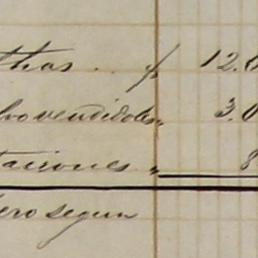 thas . $ 12.0
ho vendidoles " 3.0
taciones " 8
ero segun